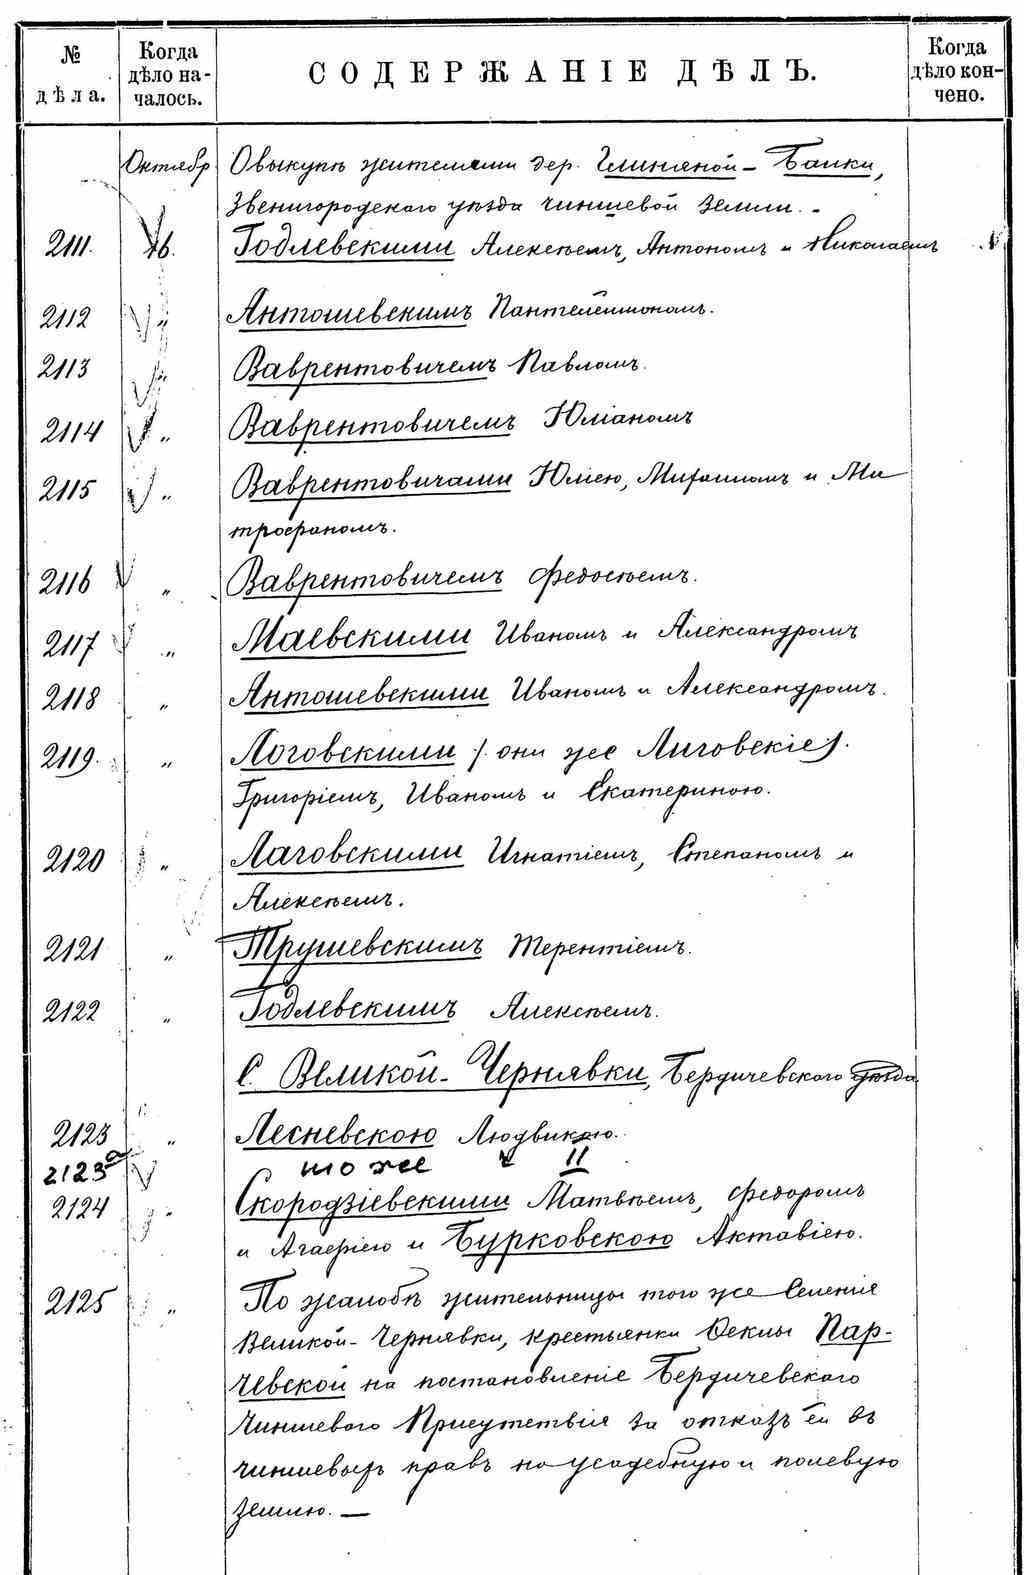 № дѣла. Когда дѣло началось. СОДЕРЖАНІЕ ДѢЛЪ. Когда дѣло кончено.
Октябр О выкупѣ жителями дер. Глиняной-Балки,
Звенигородскаго уѣзда чиншевой земли. -
2111. 16. Годлевскими Алексѣемъ, Антономъ и Николаемъ
2112 " Антошевскимъ Пантелеймономъ.
2113 " Ваврентовичемъ Павломъ.
2114 " Ваврентовичемъ Юліаномъ
2115 " Ваврентовичами Юліею, Михаиломъ и Ми
трофаномъ.
2116 " Ваврентовичемъ Федосѣемъ.
2117 " Маевскими Иваномъ и Александромъ
2118 " Антошевскими Иваномъ и Александромъ.
2119. " Логовскими /. они же Лиговскіе /.
Григоріемъ, Иваномъ и Екатериною.
2120 " Лаговскими Игнатіемъ, Степаномъ и
Алексѣемъ.
2121 " Трушевскимъ Терентіемъ.
2122 " Годлевскимъ Алексѣемъ.
С. Великой-Чернявки, Бердичевскаго уѣзда
2123 " Лесневскою Людвикою.
2123а то же II
2124 " Скородзіевскими Матвѣемъ, Федоромъ
и Агафіею и Бурковскою Актавіею.
2125 " По жалобѣ жительницы того же Селенія
Великой-Чернявки, крестьянки Феклы Пар-
чевской на постановленіе Бердичевскаго
Чиншеваго Присутствія за отказъ ей въ
чиншевыхъ правъ на усадебную и полевую
землю. —